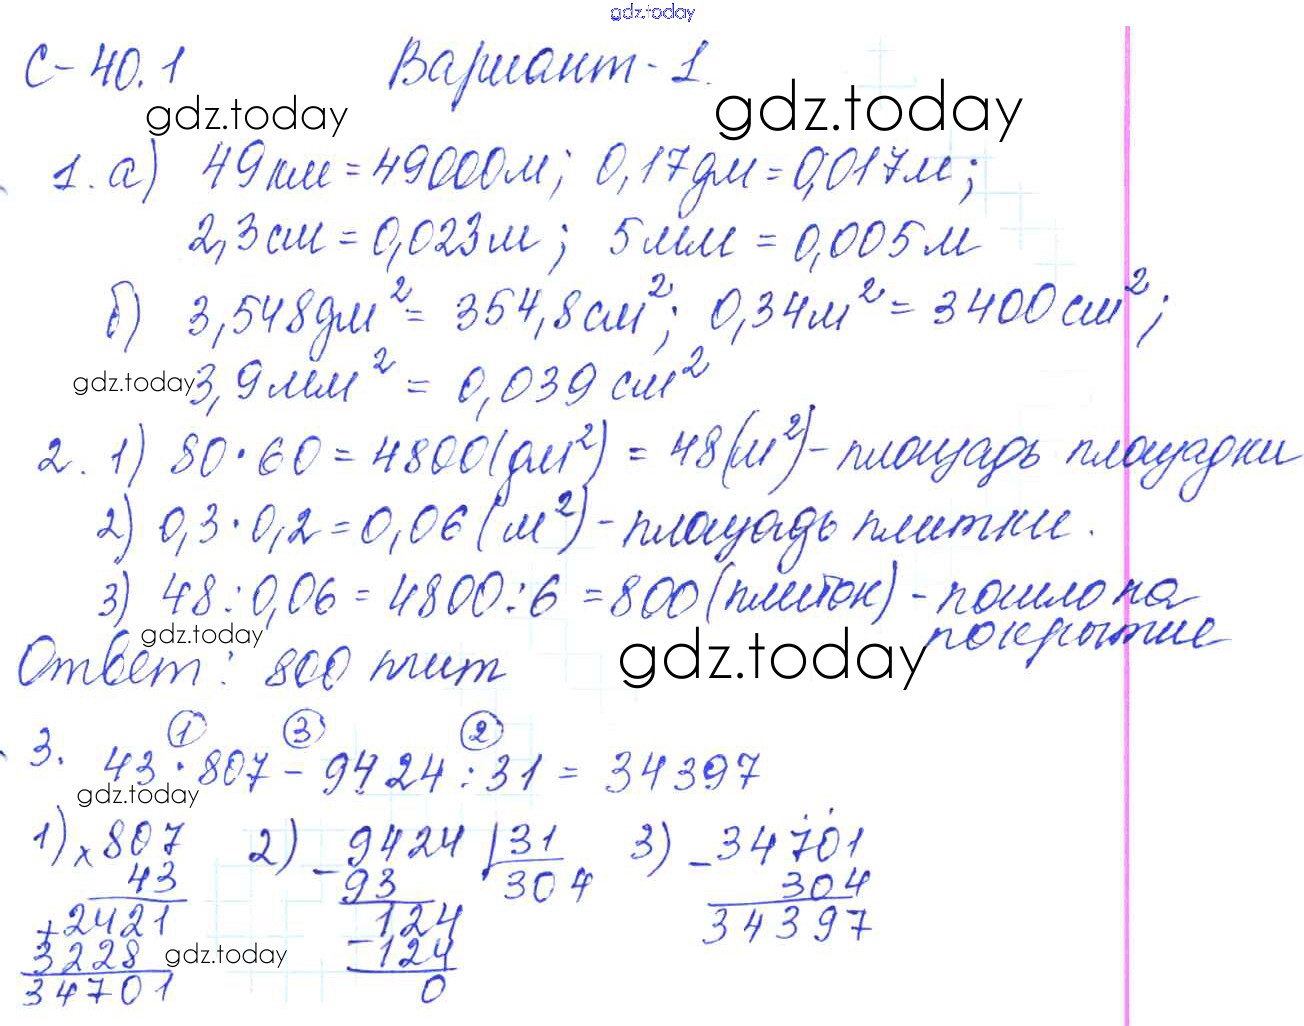 gdz.today
С-40.1 Вариант-1.
gdz.today gdz.today
1. а) 49км = 49000м; 0,17дм = 0,017м;
2,3см = 0,023м; 5мм = 0,005м
б) 3,548дм² = 354,8см²; 0,34м² = 3400см²;
gdz.today 3,9мм² = 0,039см²
2. 1) 80·60 = 4800(дм²) = 48(м²)- площадь площадки
2) 0,3·0,2 = 0,06(м²) - площадь плитки.
3) 48:0,06 = 4800:6 = 800(плиток) - пошло на
покрытие
gdz.today gdz.today
Ответ: 800 плит
① ③ ②
3. 43·807 - 9424:31 = 34397
gdz.today
1) × 807 2) - 9424 | 31 3) - 34701
43 93 304 304
+ 2421 - 124 34397
3228 124
34701 0
gdz.today